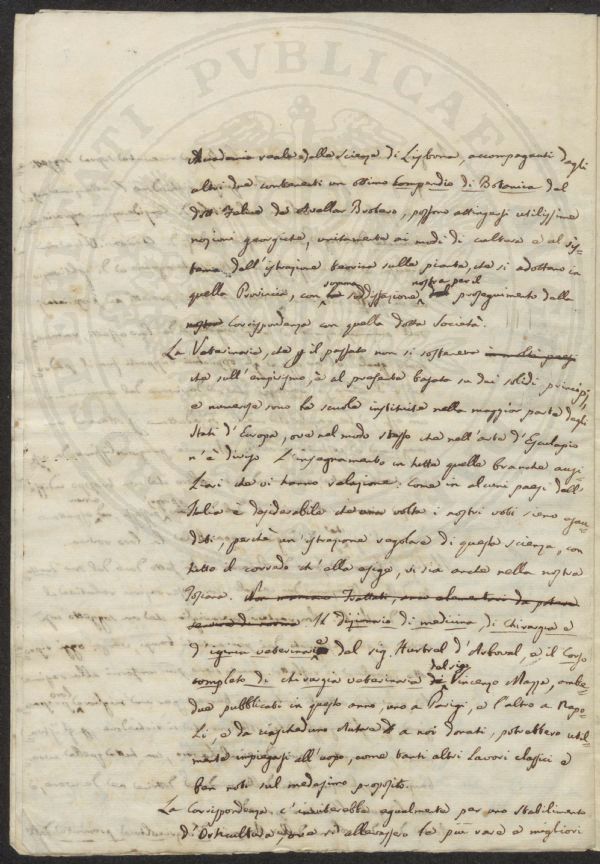 PVBLICAE
Accademia reale delle Scienze di Lisbona, accompagnati dagli
altri due contenenti un ottimo Compendio di Botanica del
Dott. Felice de Avellar Brotero, possono attingersi utilissime
nozioni georgiche, unitamente ai modi di cultura e al sis-
tema dell'istruzione teorica sulle piante, che si adottano in
quella Provincia, con somma soddisfazione nostra per il proseguimento della
nostra Corrispondenza con quella dotta Società.
La Veterinaria, che p il passato non si sosteneva in molti paesi
che sull'empirismo, è al presente basata su dei solidi principj,
e numerose sono le scuole instituite nella maggior parte degli
Stati d'Europa, ove nel modo stesso che nell'arte d'Esculapio
n'è diviso l'insegnamento in tutte quelle branche ausi-
liari che vi hanno relazione: Come in alcuni paesi dell'
Italia è desiderabile che una volta i nostri voti sieno esau-
diti, perchè un'istruzione regolare di questa scienza, con
tutto il corredo ch'ella esige, vi sia anche nella nostra
Toscana. Non mancano Trattati, une elementari da potere
servire di norma Il dizionario di medicina, di chirurgia e
d'igiene veterinaria del sig. Hurtrel d'Arboval, e il Corso
completo di chirurgia veterinaria del sig. Vincenzo Mazza, ambe-
due pubblicati in questo anno, uno a Parigi, e l'altro a Napo-
li, e da ciascheduno Autore a noi donati, potrebbero util-
mente impiegarsi all'uopo, come tanti altri lavori classici e
ben noti sul medesimo proposito.
La Corrispondenza c'inviterebbe egualmente per uno stabilimento
d'Orticultura, ove si allevassero le più rare e migliori